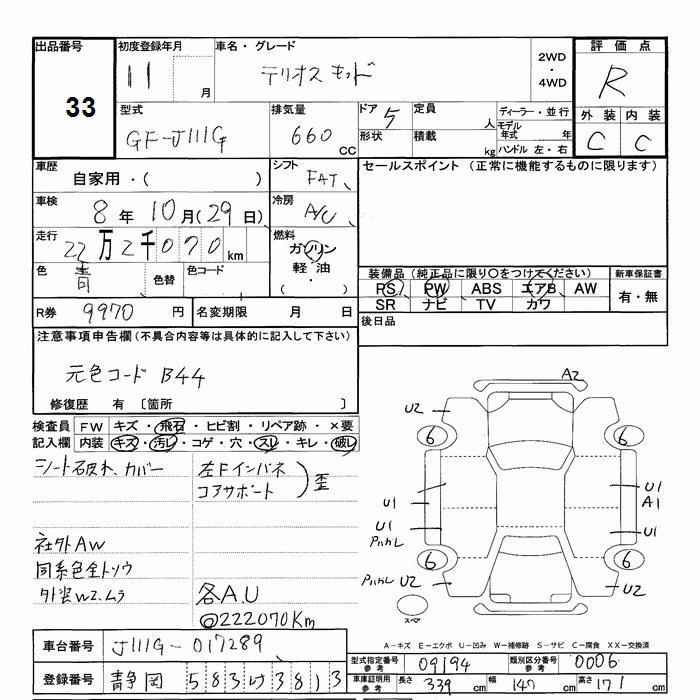 出品番号 初度登録年月 車名・グレード 評価点
33 11 月 テリオスキッド 2WD・4WD R
型式 排気量 ドア 5 定員 人 ディーラー・並行 外装 内装
GF-J111G 660 CC 形状 積載 kg モデル年式 年 C C
ハンドル 左・右
車歴 シフト セールスポイント (正常に機能するものに限ります)
自家用・( ) FAT
車検 8年10月(29日) 冷房 A/C
走行 22万2千070km 燃料 ガソリン
色 青 色替 色コード 軽油 装備品(純正品に限り〇をつけてください) 新車保証書
( ・ ) RS PW ABS エアB AW 有・無
R券 9970円 名変期限 月 日 SR ナビ TV カワ
注意事項申告欄(不具合内容等は具体的に記入して下さい) 後日品
元色コード B44
修復歴 有 〔箇所 〕
検査員 FW キズ・飛石・ヒビ割・リペア跡・×要
記入欄 内装 キズ・汚レ・コゲ・穴・スレ・キレ・破レ
シート破れ、カバー 左Fインパネ
コアサポート 歪
社外AW
同系色全トソウ
外装W2、ムラ 各AU
@222070Km
A2
U2 U2
6 6
U1 U1
A1
U1 U1
アルカレ
6 6
アルカレ U2 U2
スペア
A-キズ E-エクボ U-凹み W-補修跡 S-サビ C-腐食 XX-交換済
車台番号 J111G-017289 型式指定番号 参考 09194 類別区分番号 参考 0006
登録番号 静岡 583 け 3813 車庫証明用 参考 長さ 339cm 幅 147cm 高さ 171cm